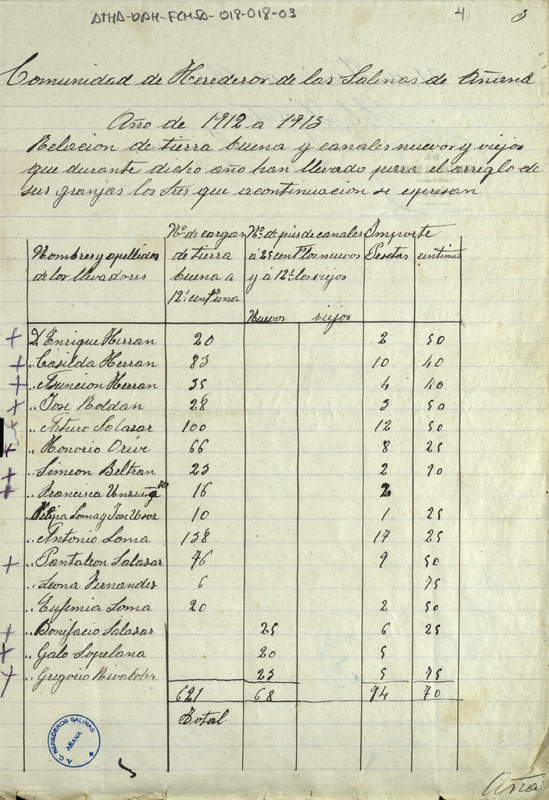 ATHA-DAH-FCHSA-018-018-03
4
3
Comunidad de Herederos de las Salinas de Añana
Año de 1912 a 1913
Relacion de tierra buena y canales nuevos y viejos
que durante dicho año han llevado para el arriglo de
sus granjas los tres que acontinuacion se epresan
Nombres y apellidos de los llevadores | Nº de cargas de tierra buena a 12½ cent una | Nº de pies de canales a 25 cent los nuevos y á 12½ los viejos | Importe
Nuevos | viejos | Pesetas | centimos
+ D Enrique Herran 20 2 50
+ " Casilda Herran 83 10 40
+ " Asuncion Herran 35 4 40
+ " Jose Roldan 28 3 50
+ " Arturo Salazar 100 12 50
+ " Honorio Orive 66 8 25
+ " Simeon Beltran 23 2 90
+ " Francisca 16 2
Felipa Loma y Jose 10 1 25
" Antonio Loma 138 17 25
+ " Pantaleon Salazar 76 9 50
" Leona Fernandez 6 75
" Eufemia Loma 20 2 50
+ " Bonifacio Salazar 25 6 25
+ " Galo Lopelana 20 5
+ " Gregorio 23 5 75
621 68 94 70
Total
A. C. HEREDEROS SALINAS
AÑANA
Aña